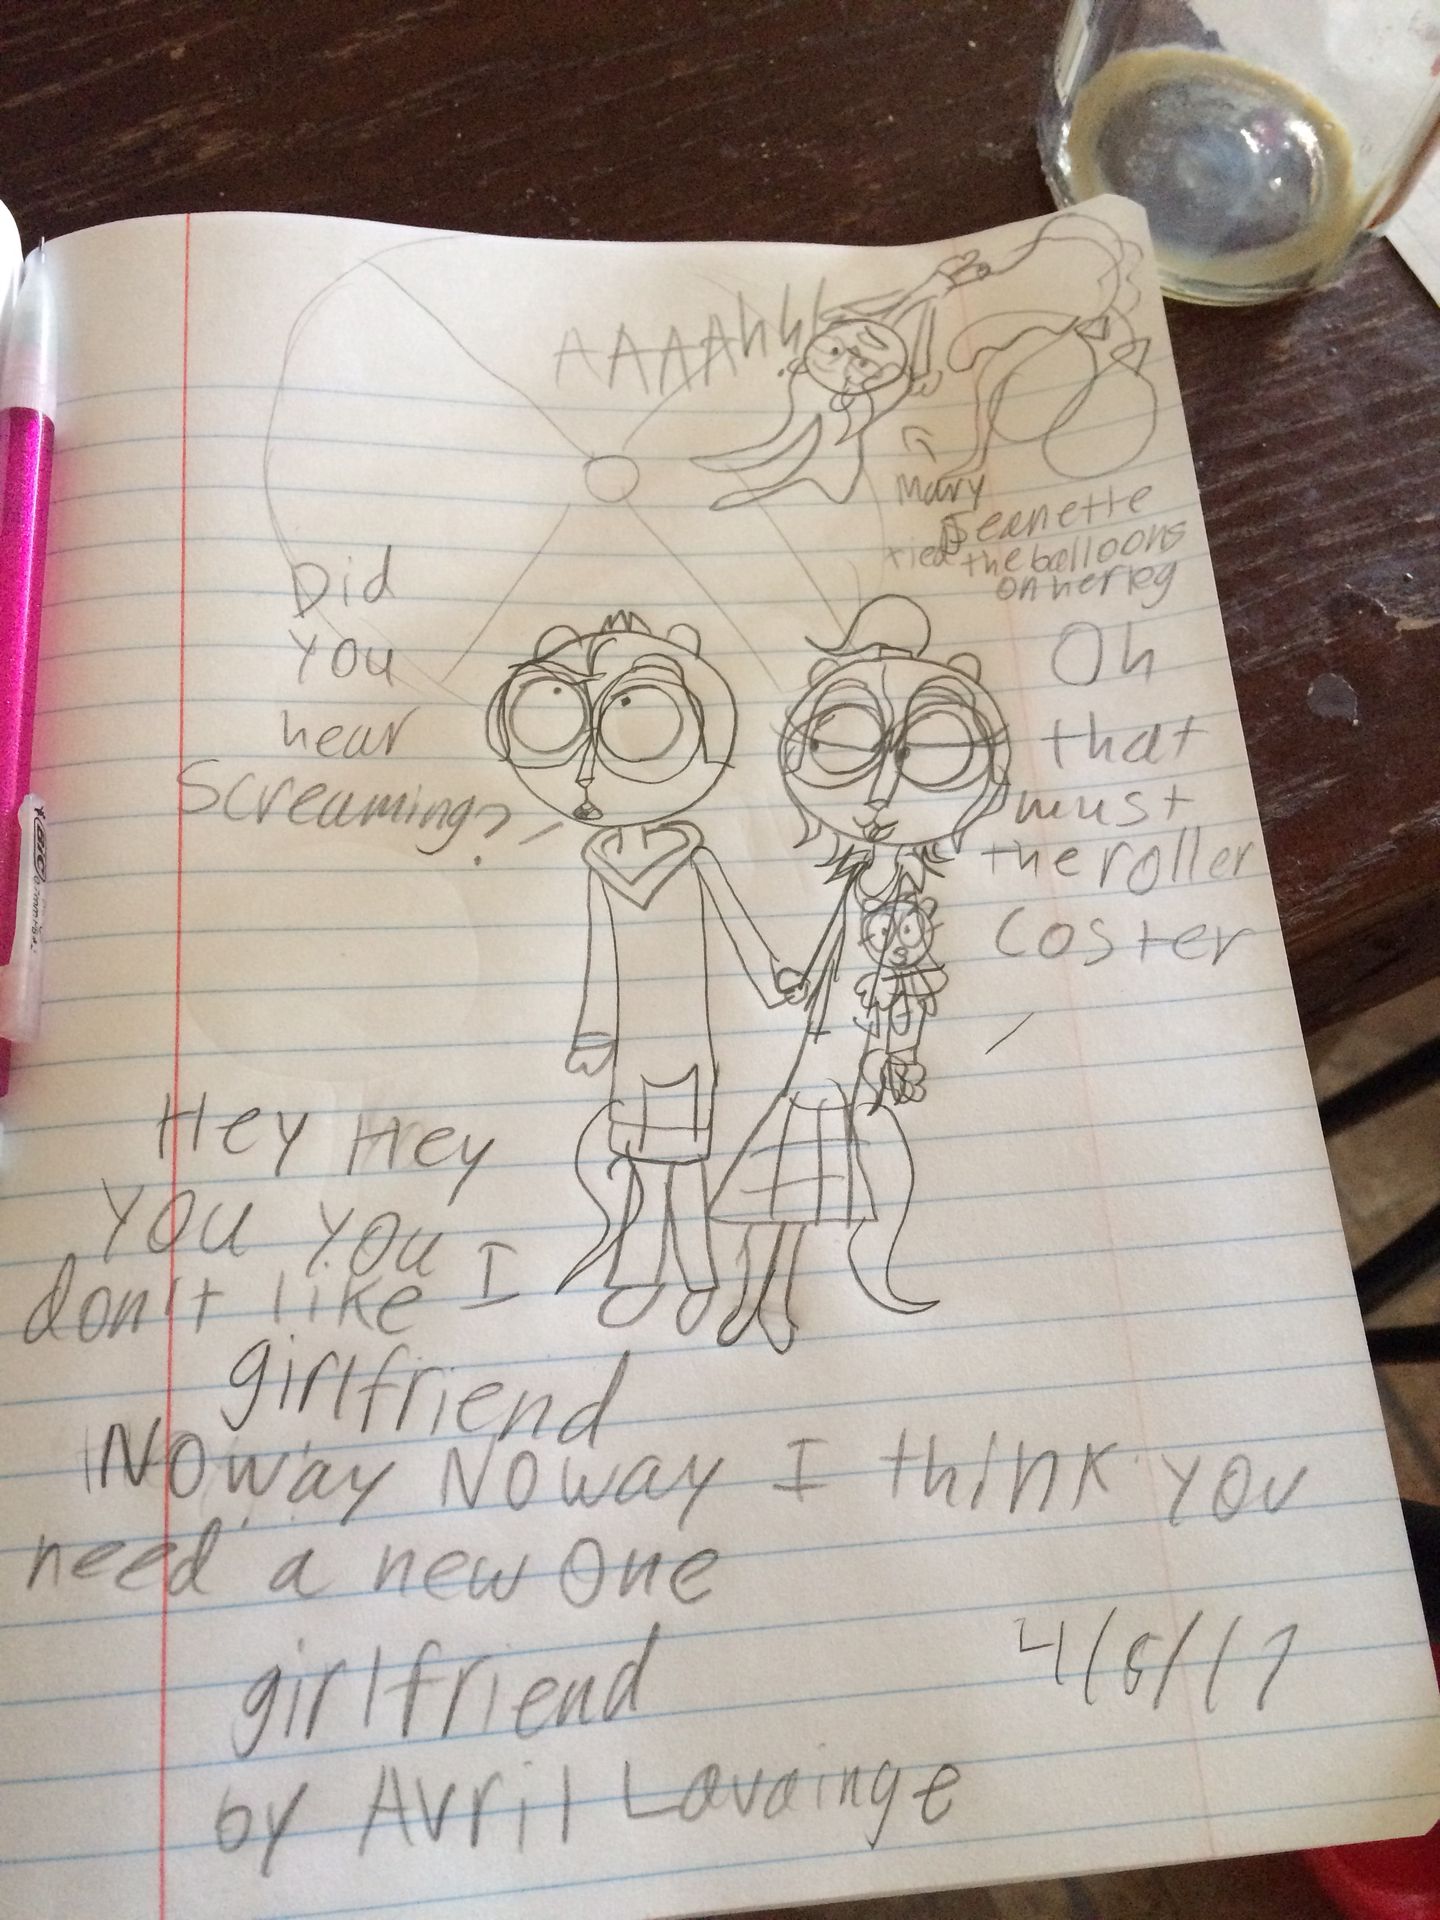 AAAAhhh
Mary
Jeanette
tied the balloons
on her leg
Did
You
hear
Screaming?
Oh
that
must
the roller
Coster
Hey Hey
You You
don't like I
girlfriend
No way No way I think you
need a new One
girlfriend
by Avril Lavainge
BIC